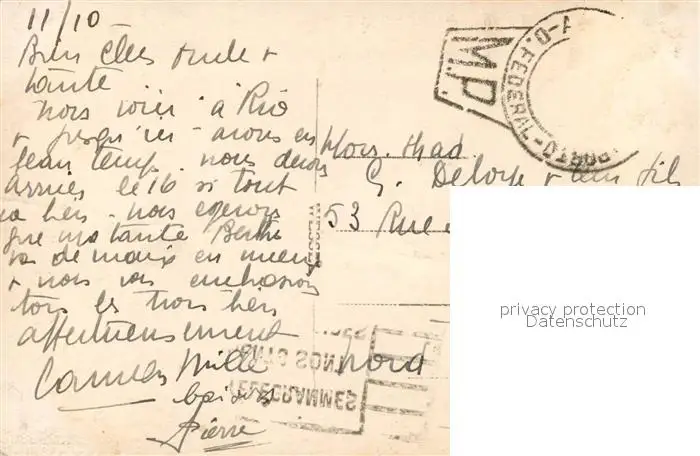 11/10
Bien chers oncle +
tante
Nous voici à Rio
+ jusqu'ici - avons eu
beau temps. nous devons
arriver le 16 si tout
va bien - nous espérons
que ma tante Berthe
va de mieux en mieux
+ nous vous embrassons
tous les trois bien
affectueusement
baisers
Pierre
M.P.
D. FEDERAL
Mons. Mad
G. Deloye + leur fils
53 Rue
Nord
TELEGRAMMES
privacy protection
Datenschutz